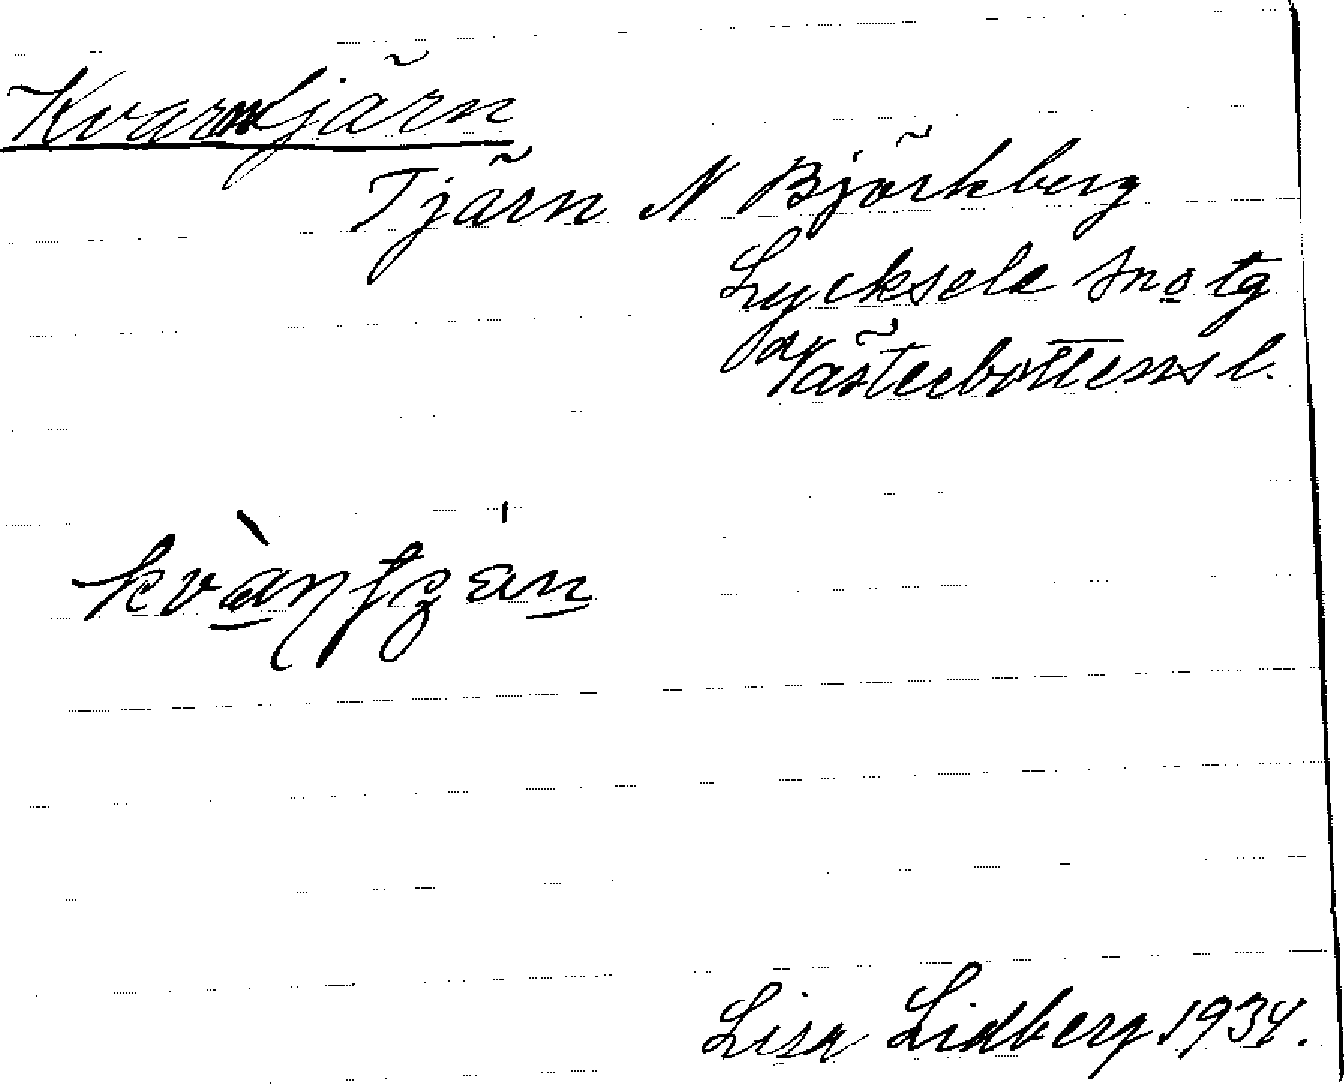 Kvarntjärn
Tjärn N Björkberg
Lycksele sn o tg
Västerbottens l.
Lisa Lidberg 1934.